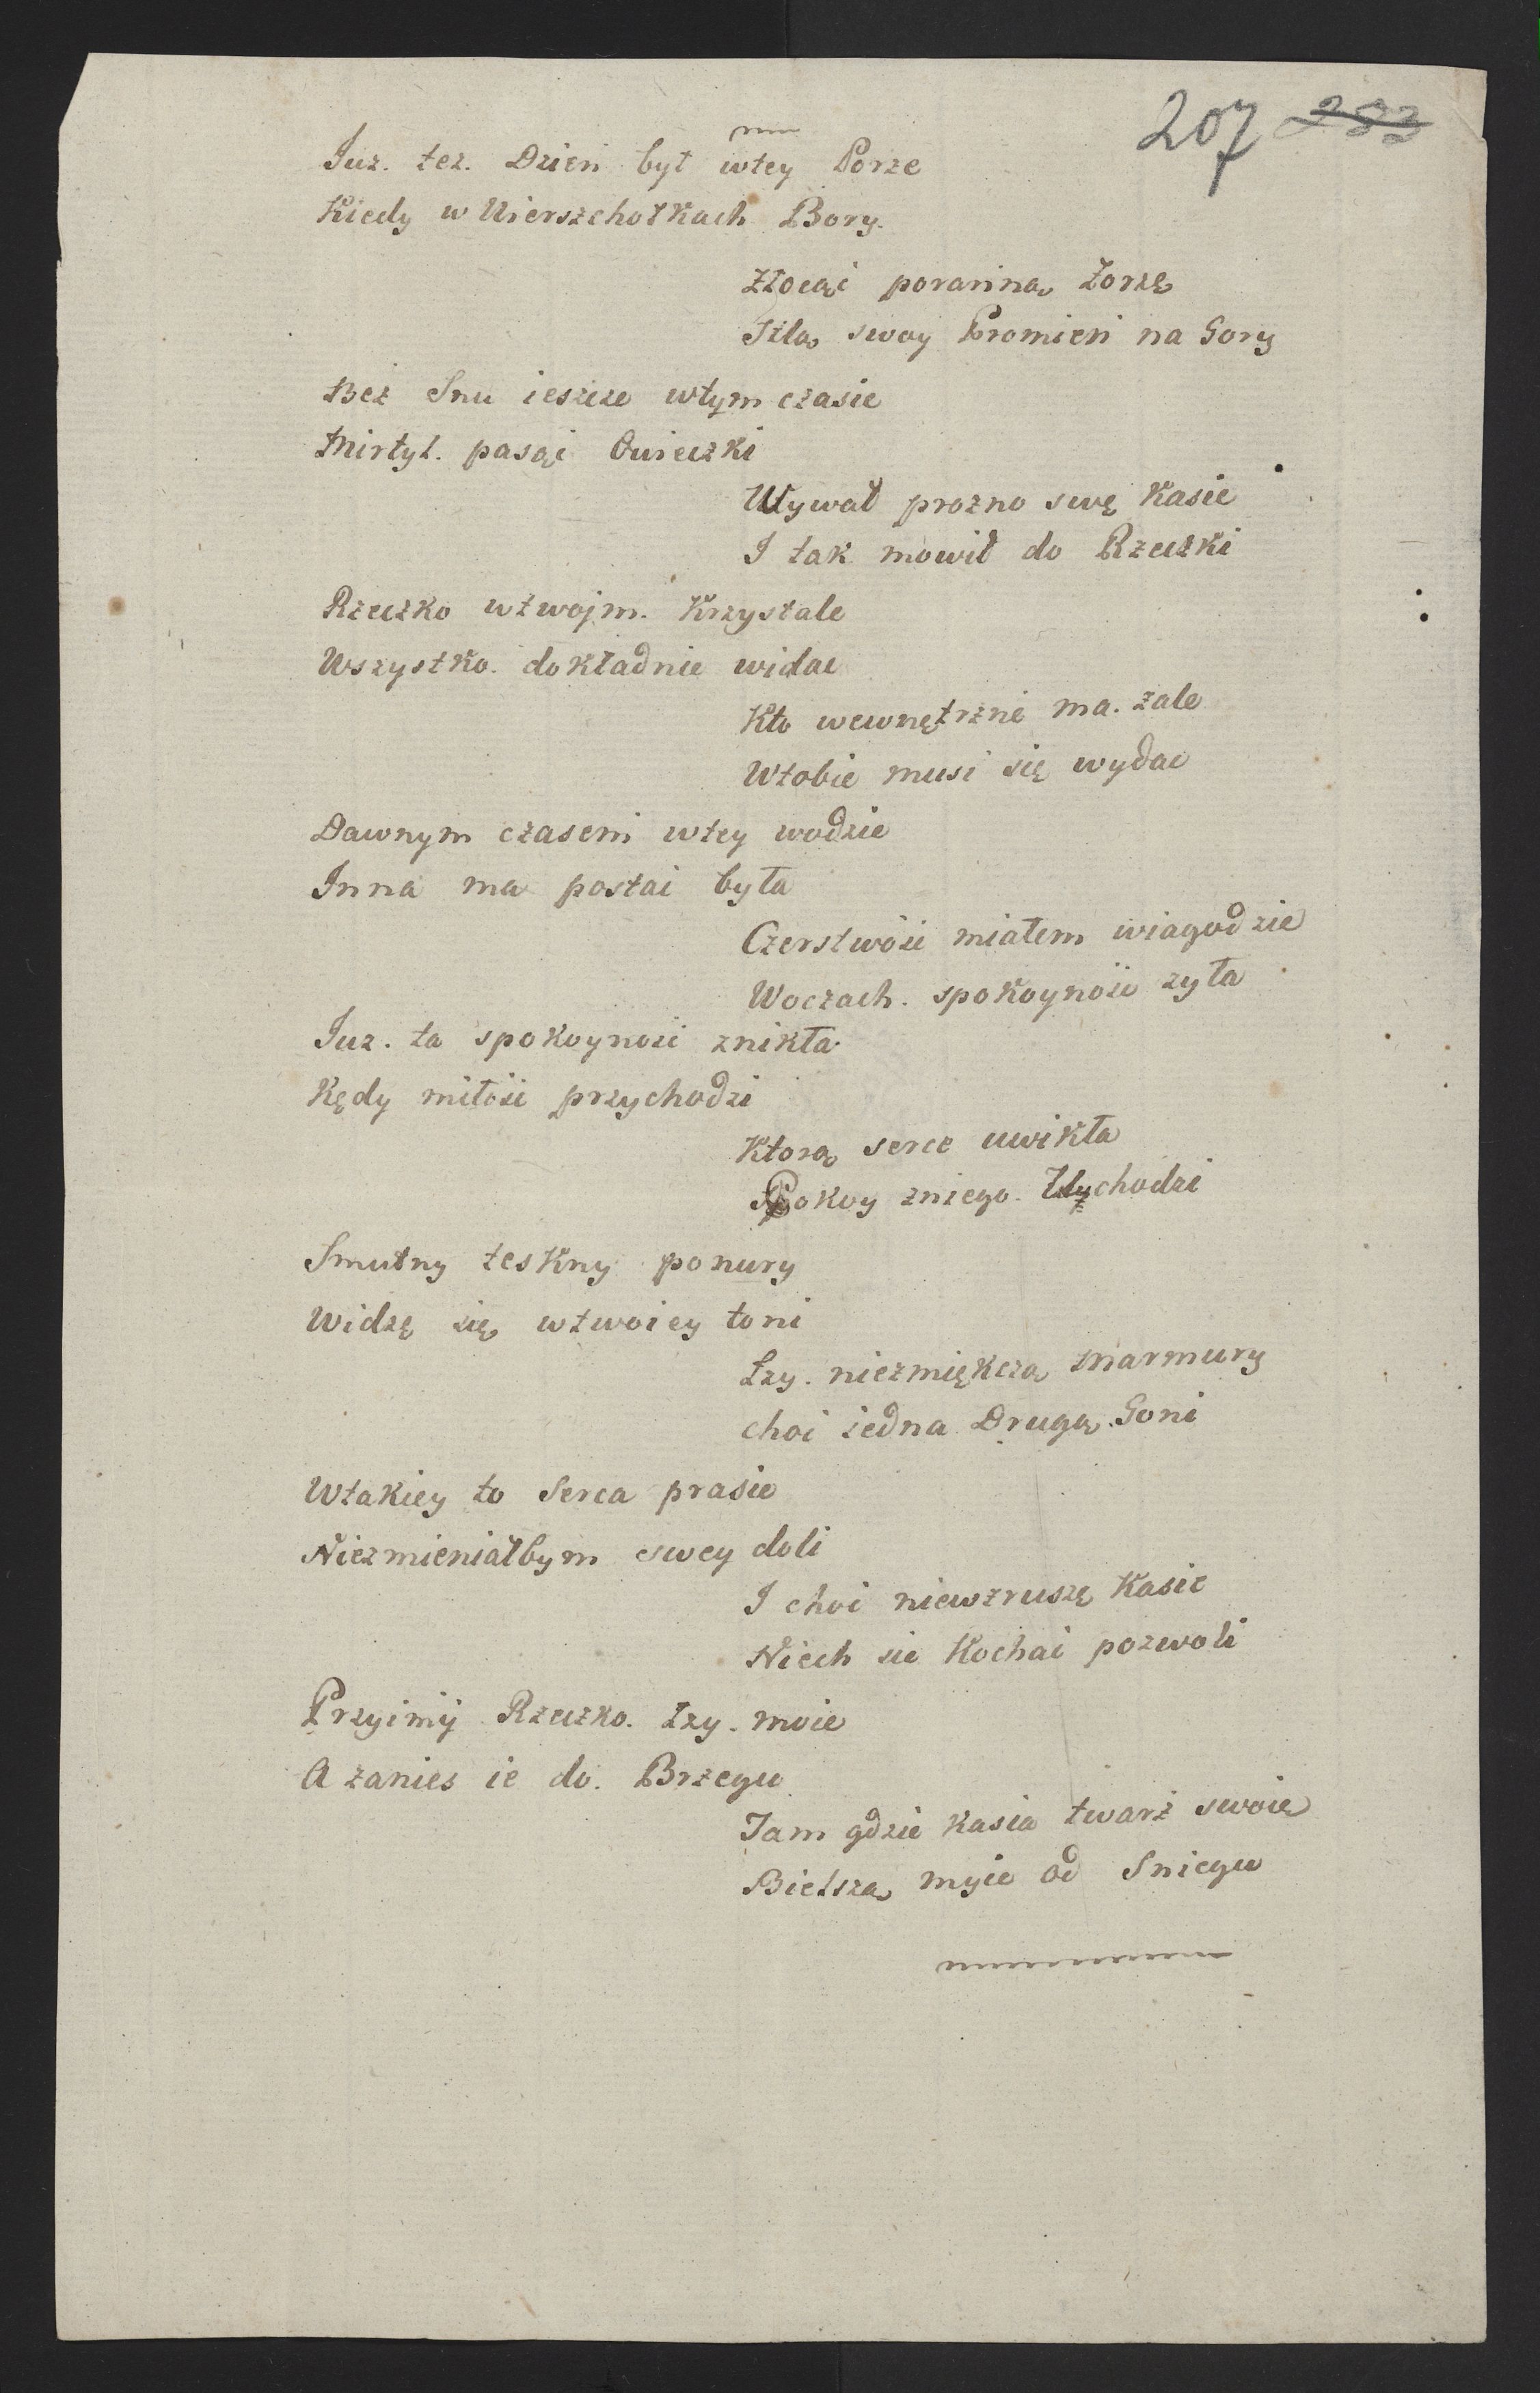 207 283
Iuz. tez. Dzien byt wtey Porze
Kiedy w Wierszchołkach Bory.
Złocąć poranną Zorzę
Szla swoy Promien na Gory
Bez Snu ieszcze wtym czasie
Mirtyl. pasąć Owieczki
Wzywał prozno swę Kasie
I tak mowił do Rzeczki
Rzeczko wtwojm. Krzystale
Wszystko. dokładnie widac
Kto wewnętrzne ma. zale
Wtobie musi się wydac
Dawnym czasem wtey wodzie
Inna ma postać była
Czerstwość miałem wiagodzie
Woczach. spokoyność zyła
Iuz. ta spokoyność znikła
Kędy miłość przychodzi
Ktorą serce uwikła
Pokoy zniego. Wychodzi
Smutny teskny ponury
Widzę się wtwoiey toni
Łzy. niezmiękczą Marmury
choć iedna Drugą. Goni
Wtakiey to Serca prasie
Niezmieniałbym swey doli
I choć niewzruszę Kasie
Niech sie Kochać pozwoli
Przyimiy Rzeczko. Łzy. moie
A zanies ie do. Brzegu
Tam gdzie Kasia twarz swoie
Bielszą myie od Sniegu